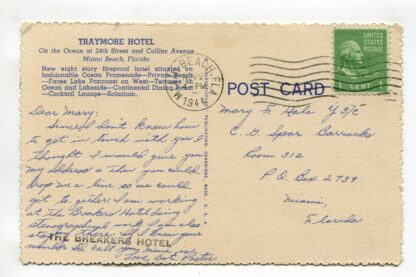 TRAYMORE HOTEL
On the Ocean at 24th Street and Collins Avenue
Miami Beach, Florida
New eight story fireproof hotel situated on
fashionable Ocean Promenade—Private Beach
—Faces Lake Pancoast on West—Terraces on
Ocean and Lakeside—Continental Dining Room
—Cocktail Lounge—Solarium.
Dear Mary:
Since I don't know how
to get in touch with you I
thought I would give you
my address & then you could
drop me a line so we could
get to-gether. I am working
at the Breakers Hotel doing
stenographical work. I am also
staying there. If I knew your
number I'd call you
Love, Dot Foster
THE BREAKERS HOTEL
MIAMI BEACH, FLA.
PM
1944
POST CARD
UNITED STATES
POSTAGE
1 CENT
Mary F. Hale Y 3/C
C. G. Spar Barracks
Room 312
P. O. Box 2739
Miami,
Florida